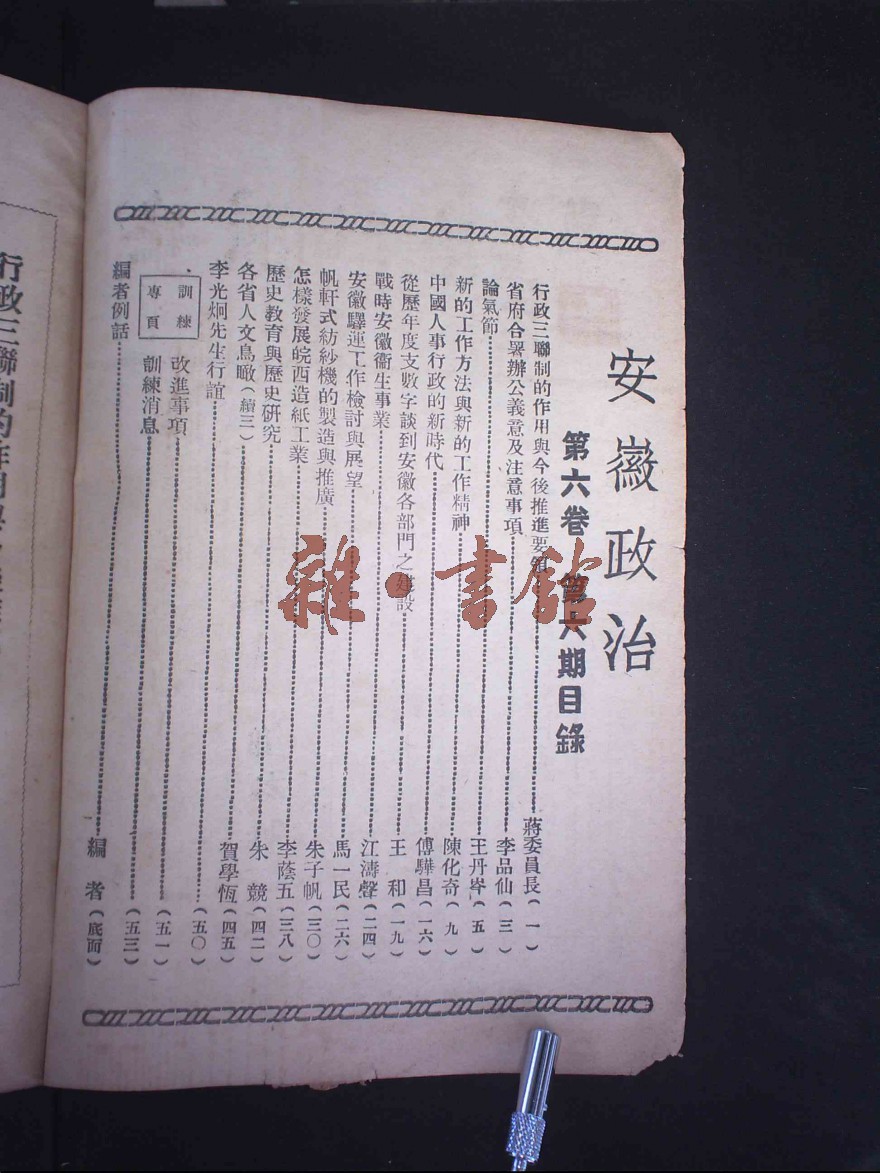 安徽政治
第六卷 第六期目錄
行政三聯制的作用與今後推進要領 蔣委員長(一)
省府合署辦公義意及注意事項 李品仙(三)
論氣節 王丹岑(五)
新的工作方法與新的工作精神 陳化奇(九)
中國人事行政的新時代 傅驊昌(一六)
從歷年度支數字談到安徽各部門之建設 王和(一九)
戰時安徽衞生事業 江濤聲(二四)
安徽驛運工作檢討與展望 馬一民(二六)
帆軒式紡紗機的製造與推廣 朱子帆(三〇)
怎樣發展皖西造紙工業 李蔭五(三八)
歷史教育與歷史研究 朱競(四二)
各省人文鳥瞰(續三) 賀學恆(四五)
李光炯先生行誼 (五〇)
訓練
專頁
改進事項 (五一)
訓練消息 (五三)
編者例話 編者(底面)
雜·書館
行政三聯制的作用與